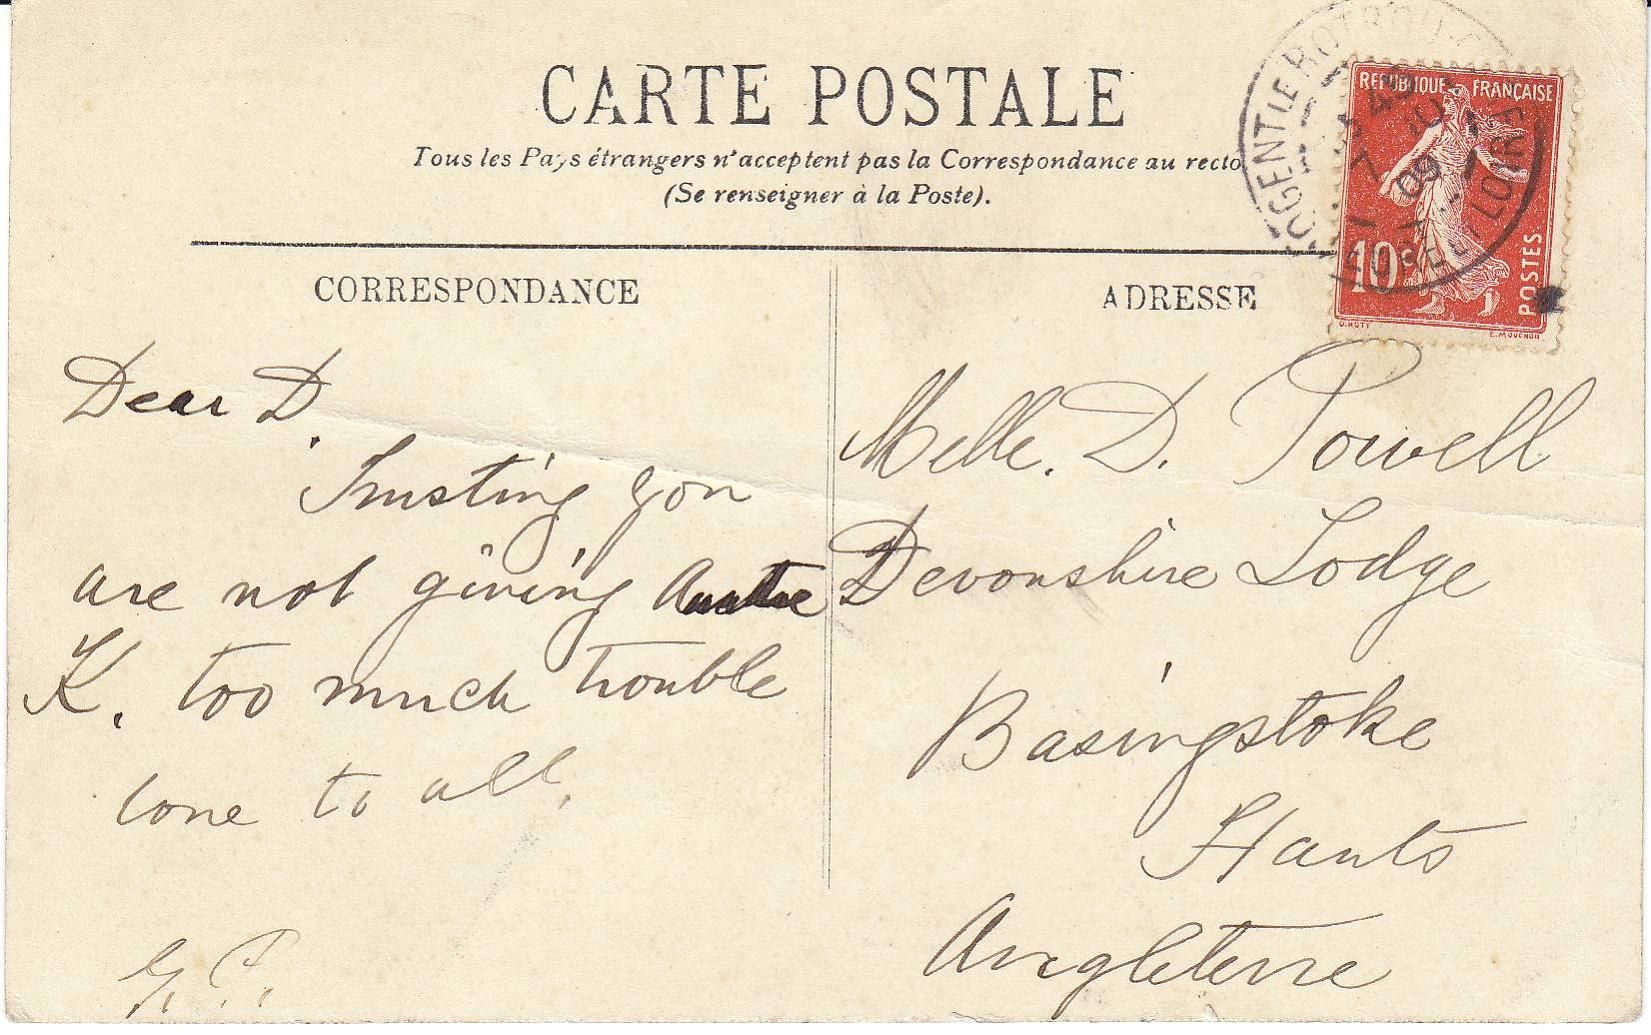 CARTE POSTALE
Tous les Pays étrangers n'acceptent pas la Correspondance au recto
(Se renseigner à la Poste).
REPUBLIQUE FRANÇAISE
10c
POSTES
O. ROTY
E. MOUCHON
OGENT LE ROTROU
7
10
09
EURE ET LOIRE
CORRESPONDANCE
Dear D.
Trusting you
are not giving
K. too much trouble
love to all.
G. P.
ADRESSE
Melle. D. Powell
Devonshire Lodge
Basingstoke
Hants
Angleterre